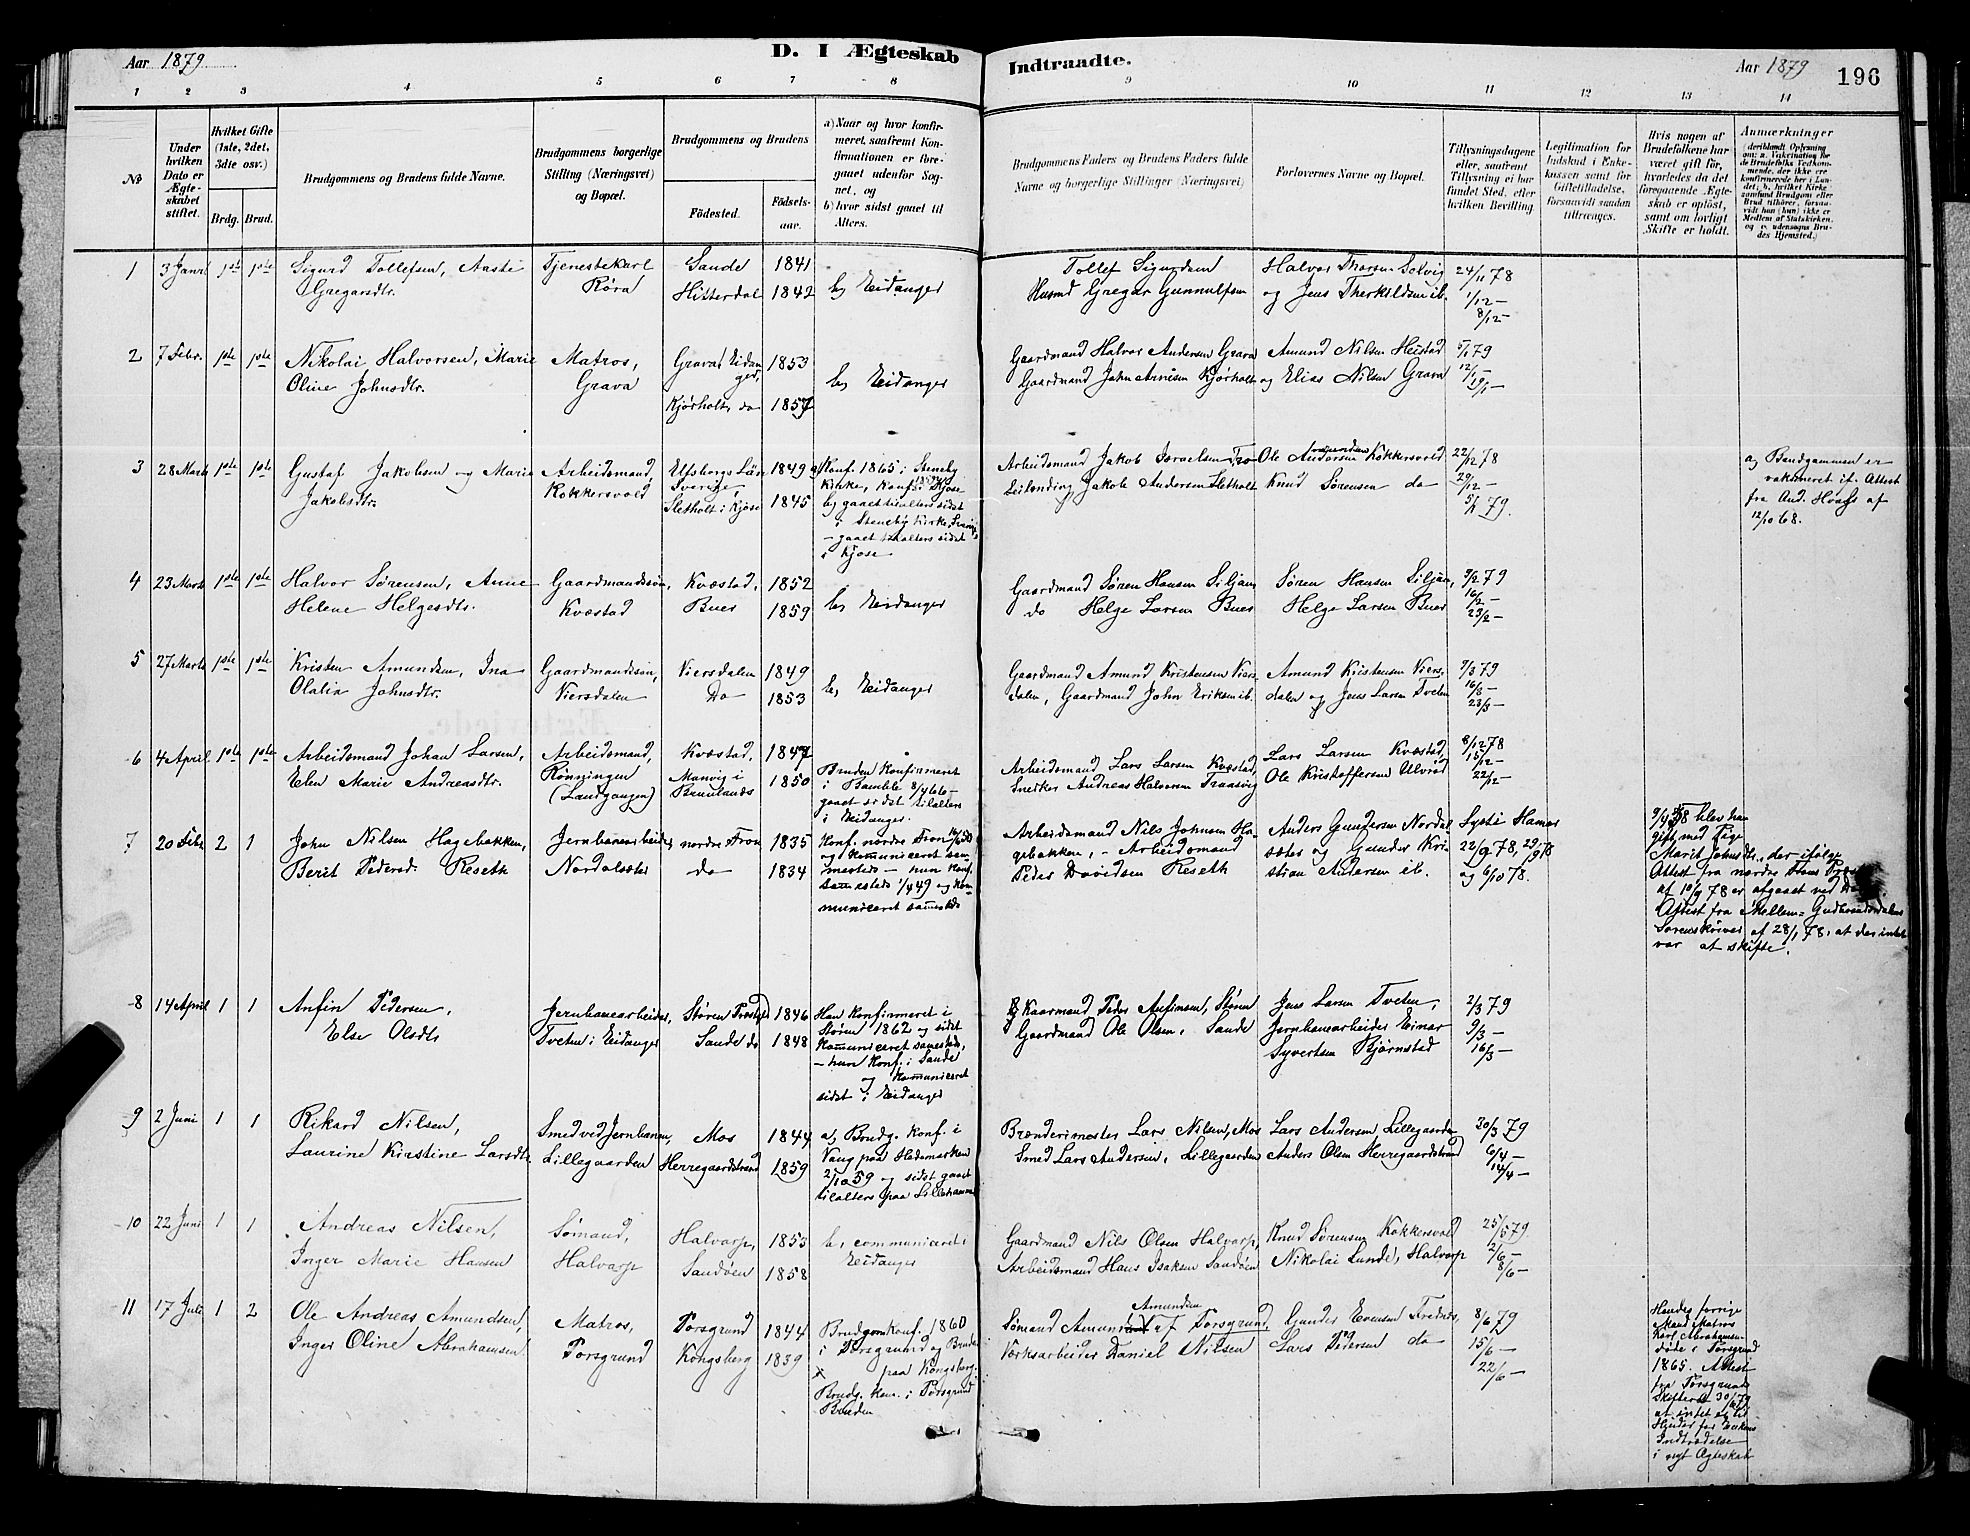 Aar 1879
D. I Ægteskab
Indtraadte.
Aar 1879
196
1 2 3 4 5 6 7 8
9 10 11 12 13 14
No
Under hvilken Dato er Ægteskabet stiftet.
Hvilket Gifte (1ste, 2det, 3die osv.)
Brdg. Brud.
Brudgommens og Brudens fulde Navne.
Brudgommens borgerlige Stilling (Næringsvei) og Bopæl.
Brudgommens og Brudens
Fødested.
Fødselsaar.
a) Naar og hvor konfirmeret, samfremt Konfirmationen er foregaaet udenfor Sognet, og
b) hvor sidst gaaet til Alters.
Brudgommens Faders og Brudens Faders fulde Navne og borgerlige Stillinger (Næringsvei)
Forlovernes Navne og Bopæl.
Tillysningsdagene eller, saafremt Tillysning ei har fundet Sted, efter hvilken Bevilling
Legitimation for Indskud i Enkekassen samt for Giftetilladelse, forsaavidt saadan tiltrænges.
Hvis nogen af Brudefolkene har været gift før, hvorledes da det foregaaende Ægteskab er opløst, samt om lovligt Skifte er holdt.
Anmærkninger
1 3 Janr 1ste 1ste
Sigurd Tollefsen, Aaste
Gregarsdtr.
Tjenestekarl
Røra
Sande 1841
Hitterdal 1842
b, Eidanger
Tollef Sigurdsen
Husmd Gregar Gunnulfsen
Halvor Thorsen Solvig
og Jens Therkildsen ib.
24/11 78
1/12 –
8/12 –
2 7 Febr. 1ste 1ste
Nikolai Halvorsen, Marie
Oline Johnsdtr.
Matros,
Grava
Grava Eidanger, 1853
Kjørholt, do 1857
b, Eidanger
Gaardmand Halvor Andersen Grava
Gaardmand John Arnesen Kjørholt
Amund Nilsen Heistad
og Elias Nilsen Grava
5/1 79
12/1 –
19/1 –
3 28 Marts 1ste 1ste
Gustaf Jakobsen og Marie
Jakobsdtr.
Arbeidsmand,
Kokkersvold
Elfsborgs Län
Sverige, 1849
Sletholt i Kjose 1845
a, Konf. 1865 i Steneby
Kirke, Konf. i Kjose
b, gaaet til alters sidst
i Steneby Kirke, Sverige
– gaaet til alters sidst
i Kjose
Arbeidsmand Jakob Israelsen
Leilending Jakob Andersen Sletholt
Ole Andersen Kokkersvold
Knud Sørensen do
22/12 78
29/12 –
5/1 79.
a, Brudgommen er
vakcineret if. Attest
fra And. Hoaf af
12/10 68.
4 23 Marts 1ste 1ste
Halvor Sørensen, Anne
Helene Helgesdtr.
Gaardmandssøn,
Kvæstad
Kvæstad, 1852
Buer 1859
b, Eidanger
Gaardmand Søren Hansen Siljan
do Helge Larsen Buer
Søren Hansen Siljan,
Helge Larsen Buer
9/2 79
16/2 –
23/2 –
5 27 Marts 1ste 1ste
Kristen Amundsen, Ina
Olalia Johnsdtr.
Gaardmandssøn,
Viersdalen
Viersdalen 1849
Do 1853
b, Eidanger
Gaardmand Amund Kristensen Viersdalen, Gaardmand John Eriksen ib.
Amund Kristensen Viersdalen og Jens Larsen Tveten
9/3 79
16/3 –
23/3 –
6 4 April 1ste 1ste
Arbeidsmand Johan Larsen,
Elen Marie Andreasdtr.
Arbeidsmand,
Rønningen
(Landgangen)
Kvæstad, 1847
Manvig i
Brunlanæs 1850
Bruden Konfirmeret
i Bamble 8/4 66 –
gaaet sidst tilalters
i Eidanger.
Arbeidsmand Lars Larsen Kvæstad,
Snedker Andreas Halvorsen Traasvig
Lars Larsen Kvæstad,
Ole Kristoffersen Ulvrød
8/12 78
15/12 –
22/12 –
7 20 Febr 2 1
John Nilsen Hagebakken,
Berit Pedersd. Reseth
Jernbanearbeider
Nordalsæter
nordre Fron 1835
do 1834
Konf. nordre Fron 16/6 50
og kommuniceret sammesteds – hun Konf.
sammesteds 1/4 49 og kommuniceret sammesteds
Arbeidsmand Nils Johnsen Hagebakken, – Arbeidsmand
Peder Davidsen Reseth
Anders Gundersen Nordalsæter og Gunder Kristian Andersen ib.
Lyst i Hamar
22/9 78, 29/9 78
og 6/10 78.
9/4 58 blev han
gift med Pige
Marit Johnsdtr., der ifølge
Attest fra nordre Frons Præst
af 10/9 78 er afgaaet ved Død.
Attest fra Mellem-Gudbrandsdalens
Sorenskriver af 28/1 78, at der intet
var at skifte.
8 14 April 1 1
Anfin Pedersen,
Else Olsdtr
Jernbanearbeider,
Tveten i Eidanger
Støren Prstgjd 1846
Sande do 1848
Han Konfirmeret i
Støren 1862 og sidst
Kommuniceret samesteds,
– hun Konf. i Sande
og Kommuniceret
sidst i Eidanger
Kaarmand Peder Anfinsen, Støren
Gaardmand Ole Olsen, Sande
Jens Larsen Tveten,
Jernbanearbeider Einar
Syvertsen Bjørnstad
2/3 79
9/3 –
16/3 –
9 2 Juni 1 1
Rikard Nilsen,
Laurine Kirstine Larsdtr
Smed ved Jernbanen,
Lillegaarden
Mos 1844
Herregaardstrand 1859
a, Brudg. Konf. i
Vang paa Hedemarken
2/10 59 og sidst gaaet
tilalters paa Lillehammer
Brænderimester Lars Nilsen, Mos
Smed Lars Andersen, Lillegaarden
Lars Andersen Lillegaarden
Anders Olsen Herregaardstrand
30/3 79
6/4 –
14/4 –
10 22 Juni 1 1
Andreas Nilsen,
Inger Marie Hansen
Sømand,
Halvarp
Halvarp, 1853
Sandøen 1858
b, communiceret i
Eidanger
Gaardmand Nils Olsen Halvarp,
Arbeidsmand Hans Isaksen Sandøen
Knud Sørensen Kokkersvold
Nikolai Lunde, Halvarp
25/5 79.
2/6 –
8/6 –
11 17 Juli 1 2
Ole Andreas Amundsen,
Inger Oline Abrahamsen
Matros,
Porsgrund
Porsgrund 1844
Kongsberg 1839
Brudgom konf. 1860
i Porsgrund og Bruden
paa Kongsberg.
Brudg. kom. i Porsgrund
Bruden
Amundsen
Sømand Amund af Porsgrund
Værksarbeider Daniel Nilsen
Gunder Evensen Frednæs,
Lars Pedersen do
8/6 79
15/6 –
22/6 –
Hendes forrige
Mand Matros
Karl Abrahamsen
døde i Porsgrund
1865. Attest
fra Porsgrunds
Skifteret 30/6 79
at intet er til
Hinder for Enkens
Indtrædelse
i nyt Ægteskab